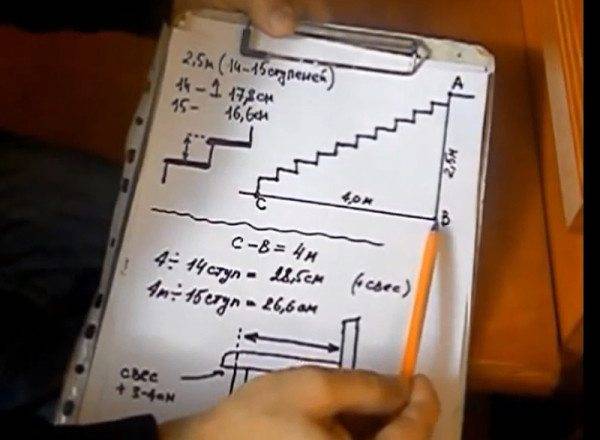 2,5м (14-15ступеней)
14 - 17,8см
15 - 16,6см
A
2,5м
4,0м
C
B
C-B = 4м
4÷14ступ = 28,5см (+свес)
4м÷15ступ = 26,6см
свес
+ 3-4см